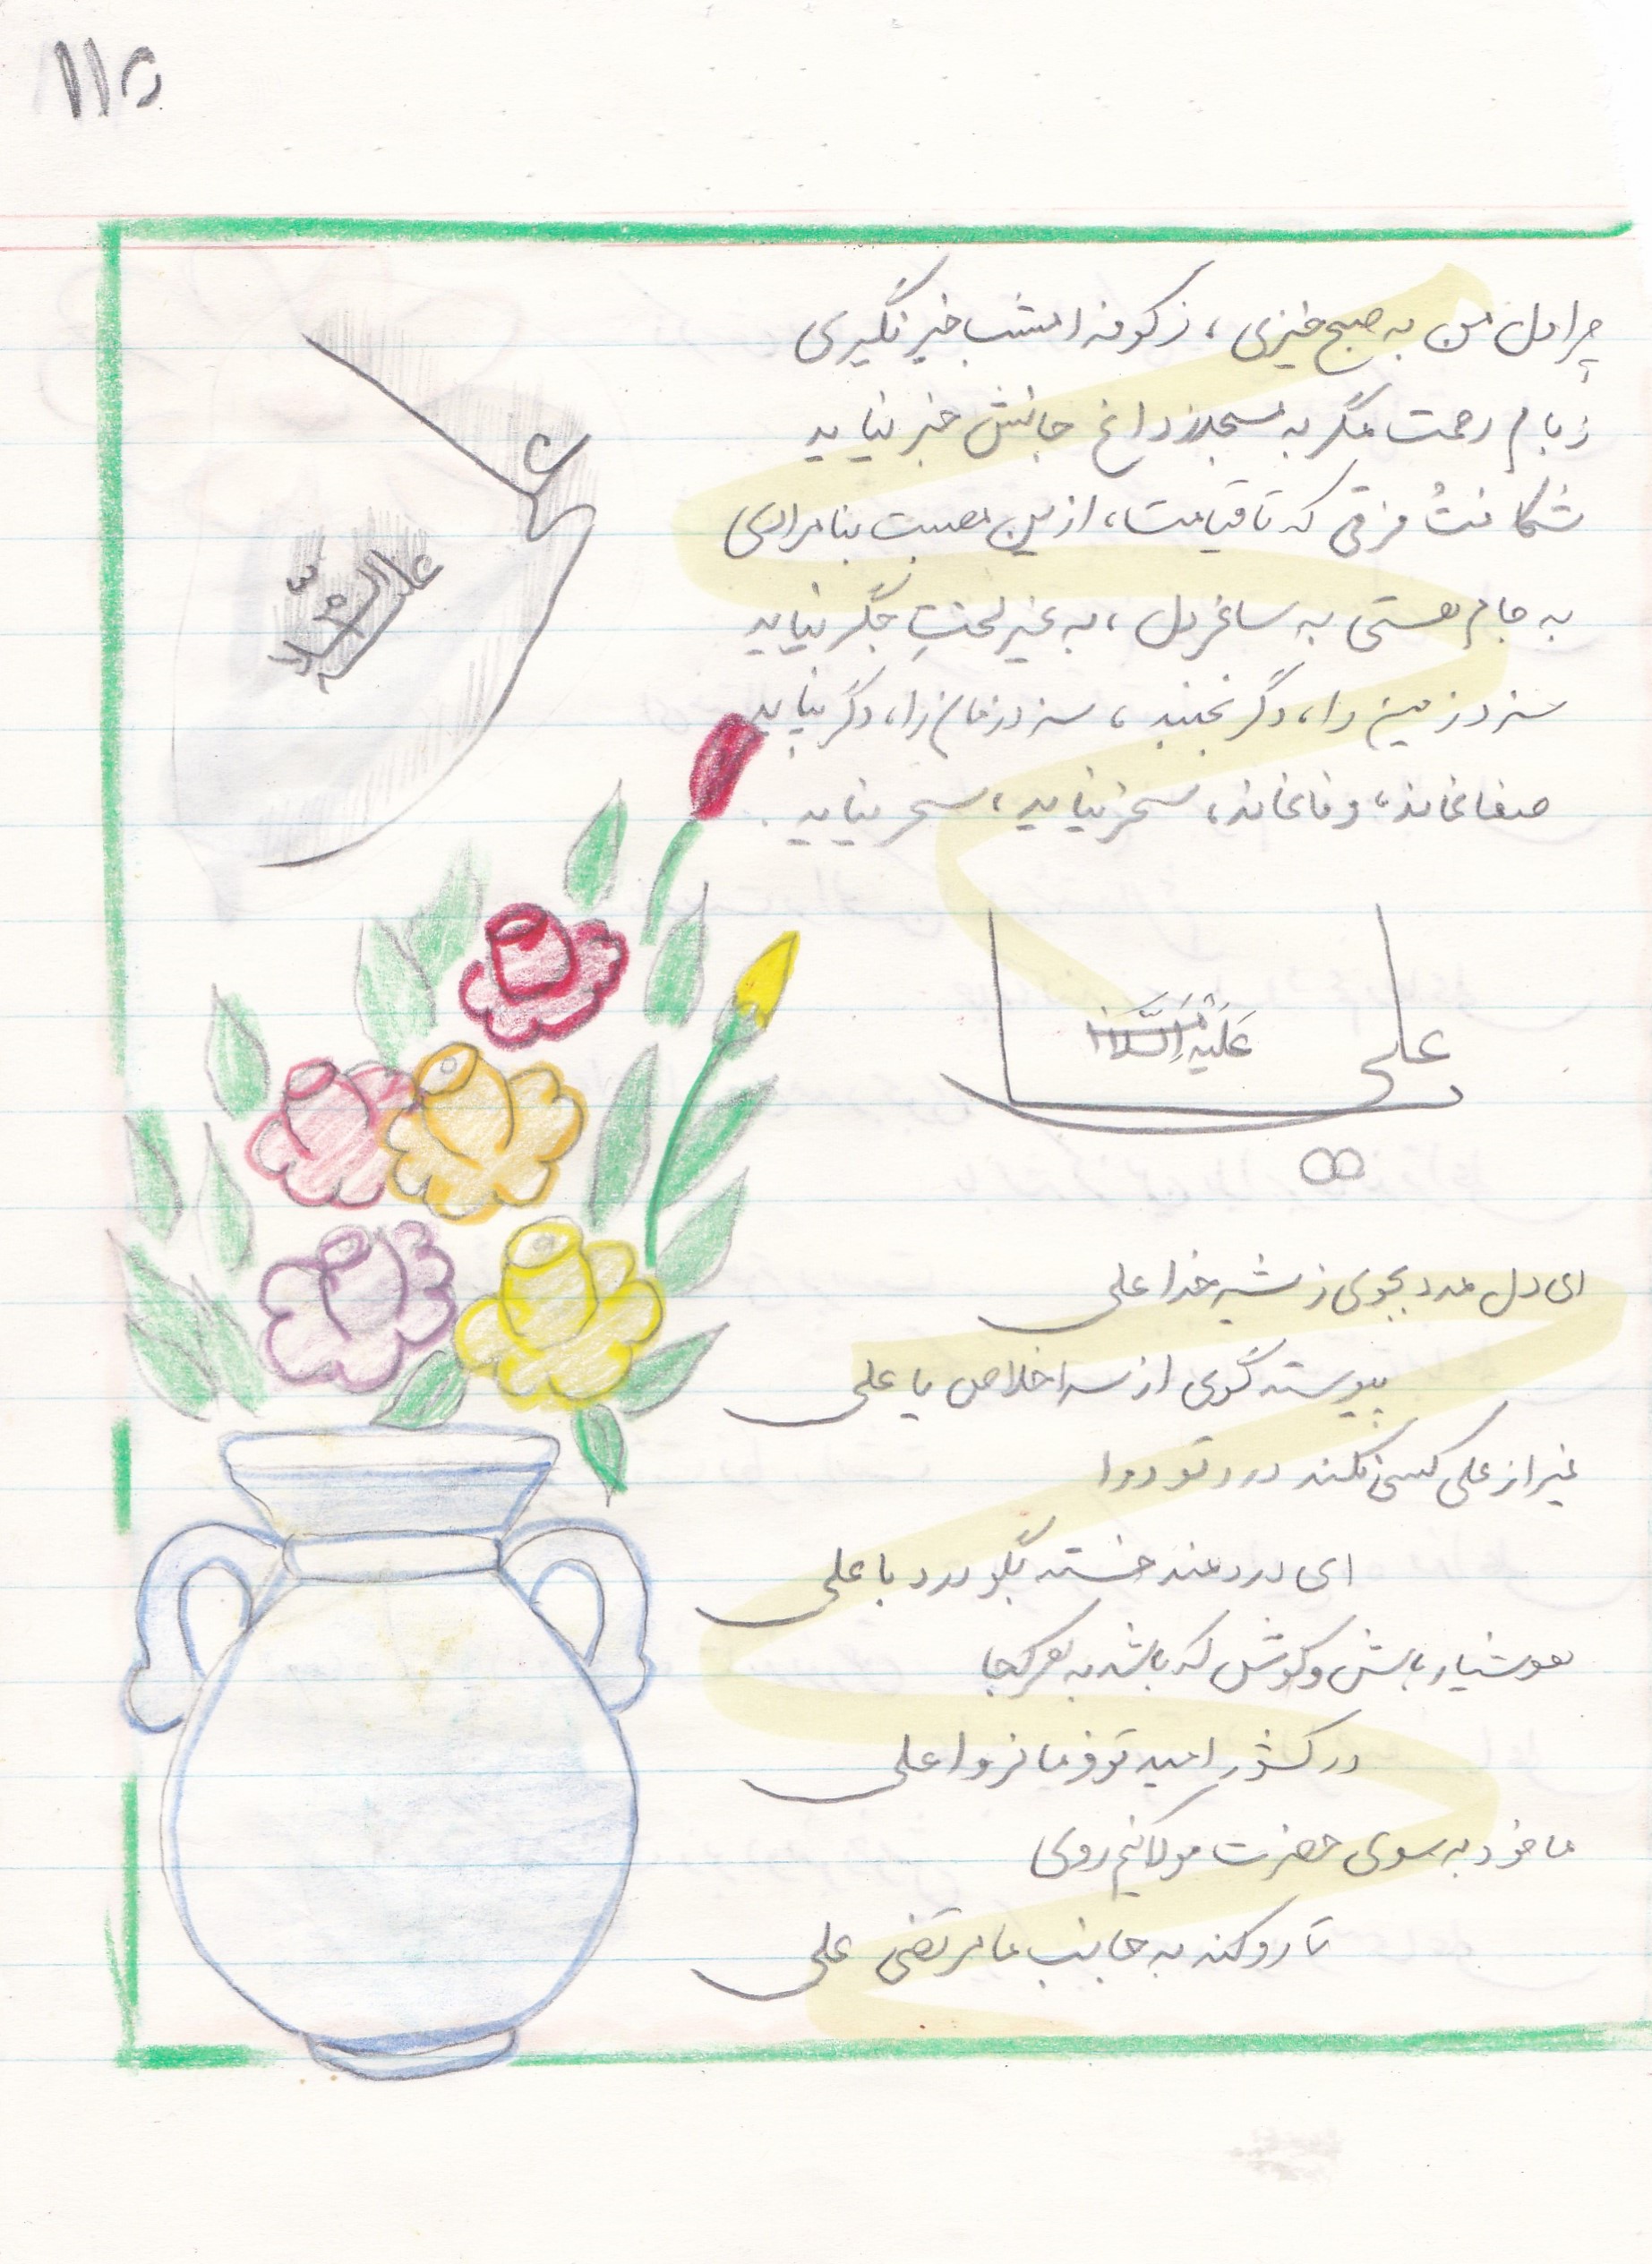 ۱۱۵
چرا دل من به صبح خیزی، ز کوفه امشب خبر نگیری
ز بام رحمت مگر به مسجد ز داغ جانش خبر نیاید
شکافت فرقی که تا قیامت، از این مصیبت بنامرادی
به جام هستی به ساغر دل، به غیر لخت جگر نیاید
سزد زمین را، دگر نجنبد، سزد زمان را، دگر نیاید
صفا نماند، وفا نماند، سحر نیاید، سحر نیاید.
علی
علیه السلام
علی
عَلَیْهِ السَّلام
ای دل مدد بجوی ز شیر خدا علی
پیوسته گوی از سر اخلاص یا علی
غیر از علی کسی نکند درد تو دوا
ای دردمند خسته بگو درد با علی
هوشیار باش و کوش که باشد به هر کجا
در کشور امید تو فرمانروا علی
ما خود به سوی حضرت مولا کنیم روی
تا رو کند به جانب ما مرتضی علی